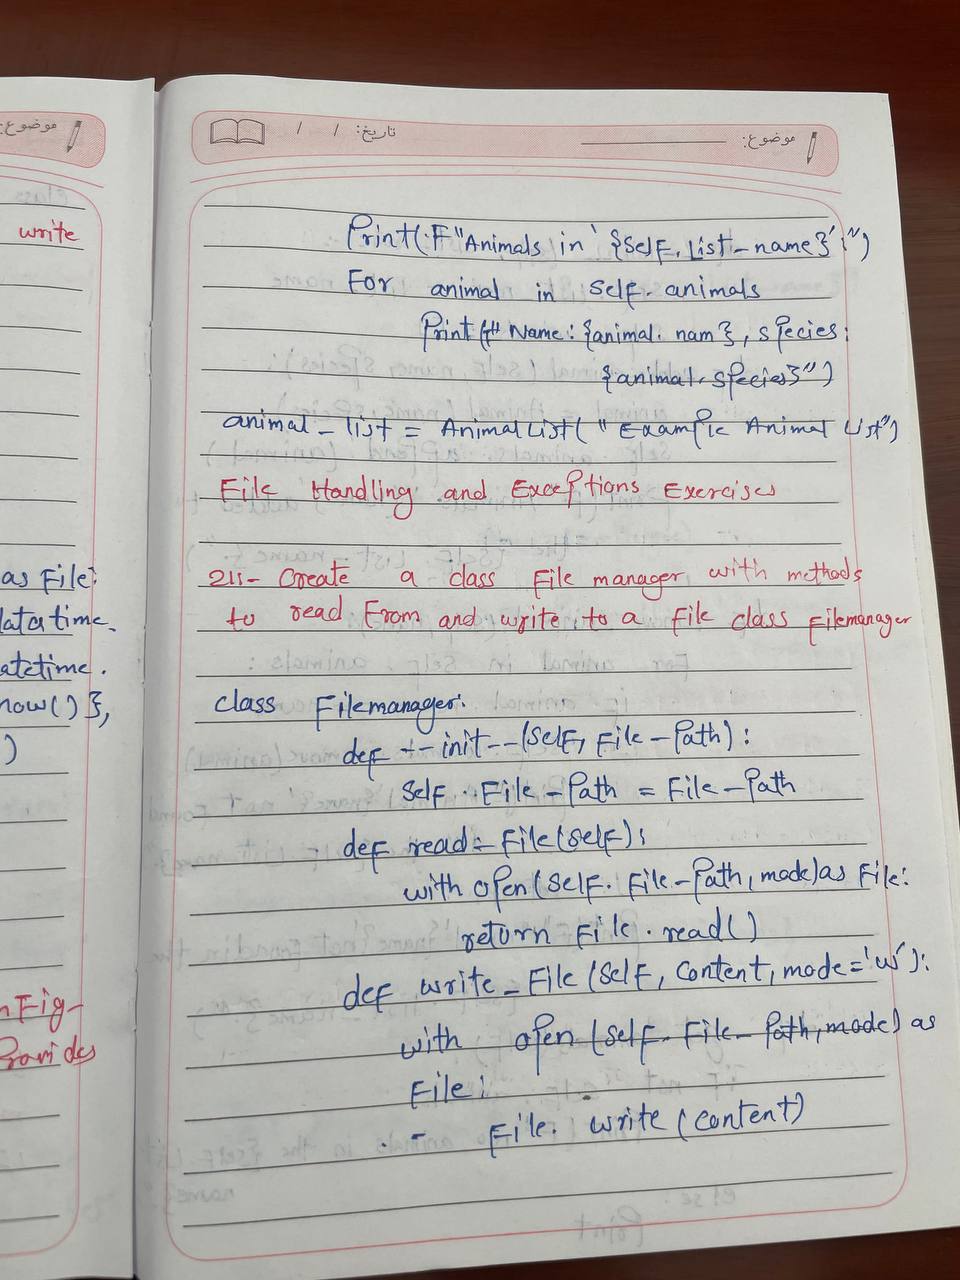 موضوع:
write
as File:
datatime.
atetime.
now() },
)
n Fig-
Provides
موضوع:
تاریخ: / /
Print(F"Animals in '{Self.List-name}':")
For animal in Self.animals
Print(F"Name: {animal.nam}, species:
{animal.species}")
animal_list = AnimalList("Example Animal List")
File Handling and Exceptions Exercises
211- Create a class File manager, with methods
to read From and write to a File class Filemanager
class Filemanager:
def --init--(Self, File-Path):
Self.File-Path = File-Path
def read-File(Self):
with open(Self.File-Path, mode) as File:
return File.read()
def write_File(Self, Content, mode='w'):
with open(Self.File-Path, mode) as
File:
File.write(Content)